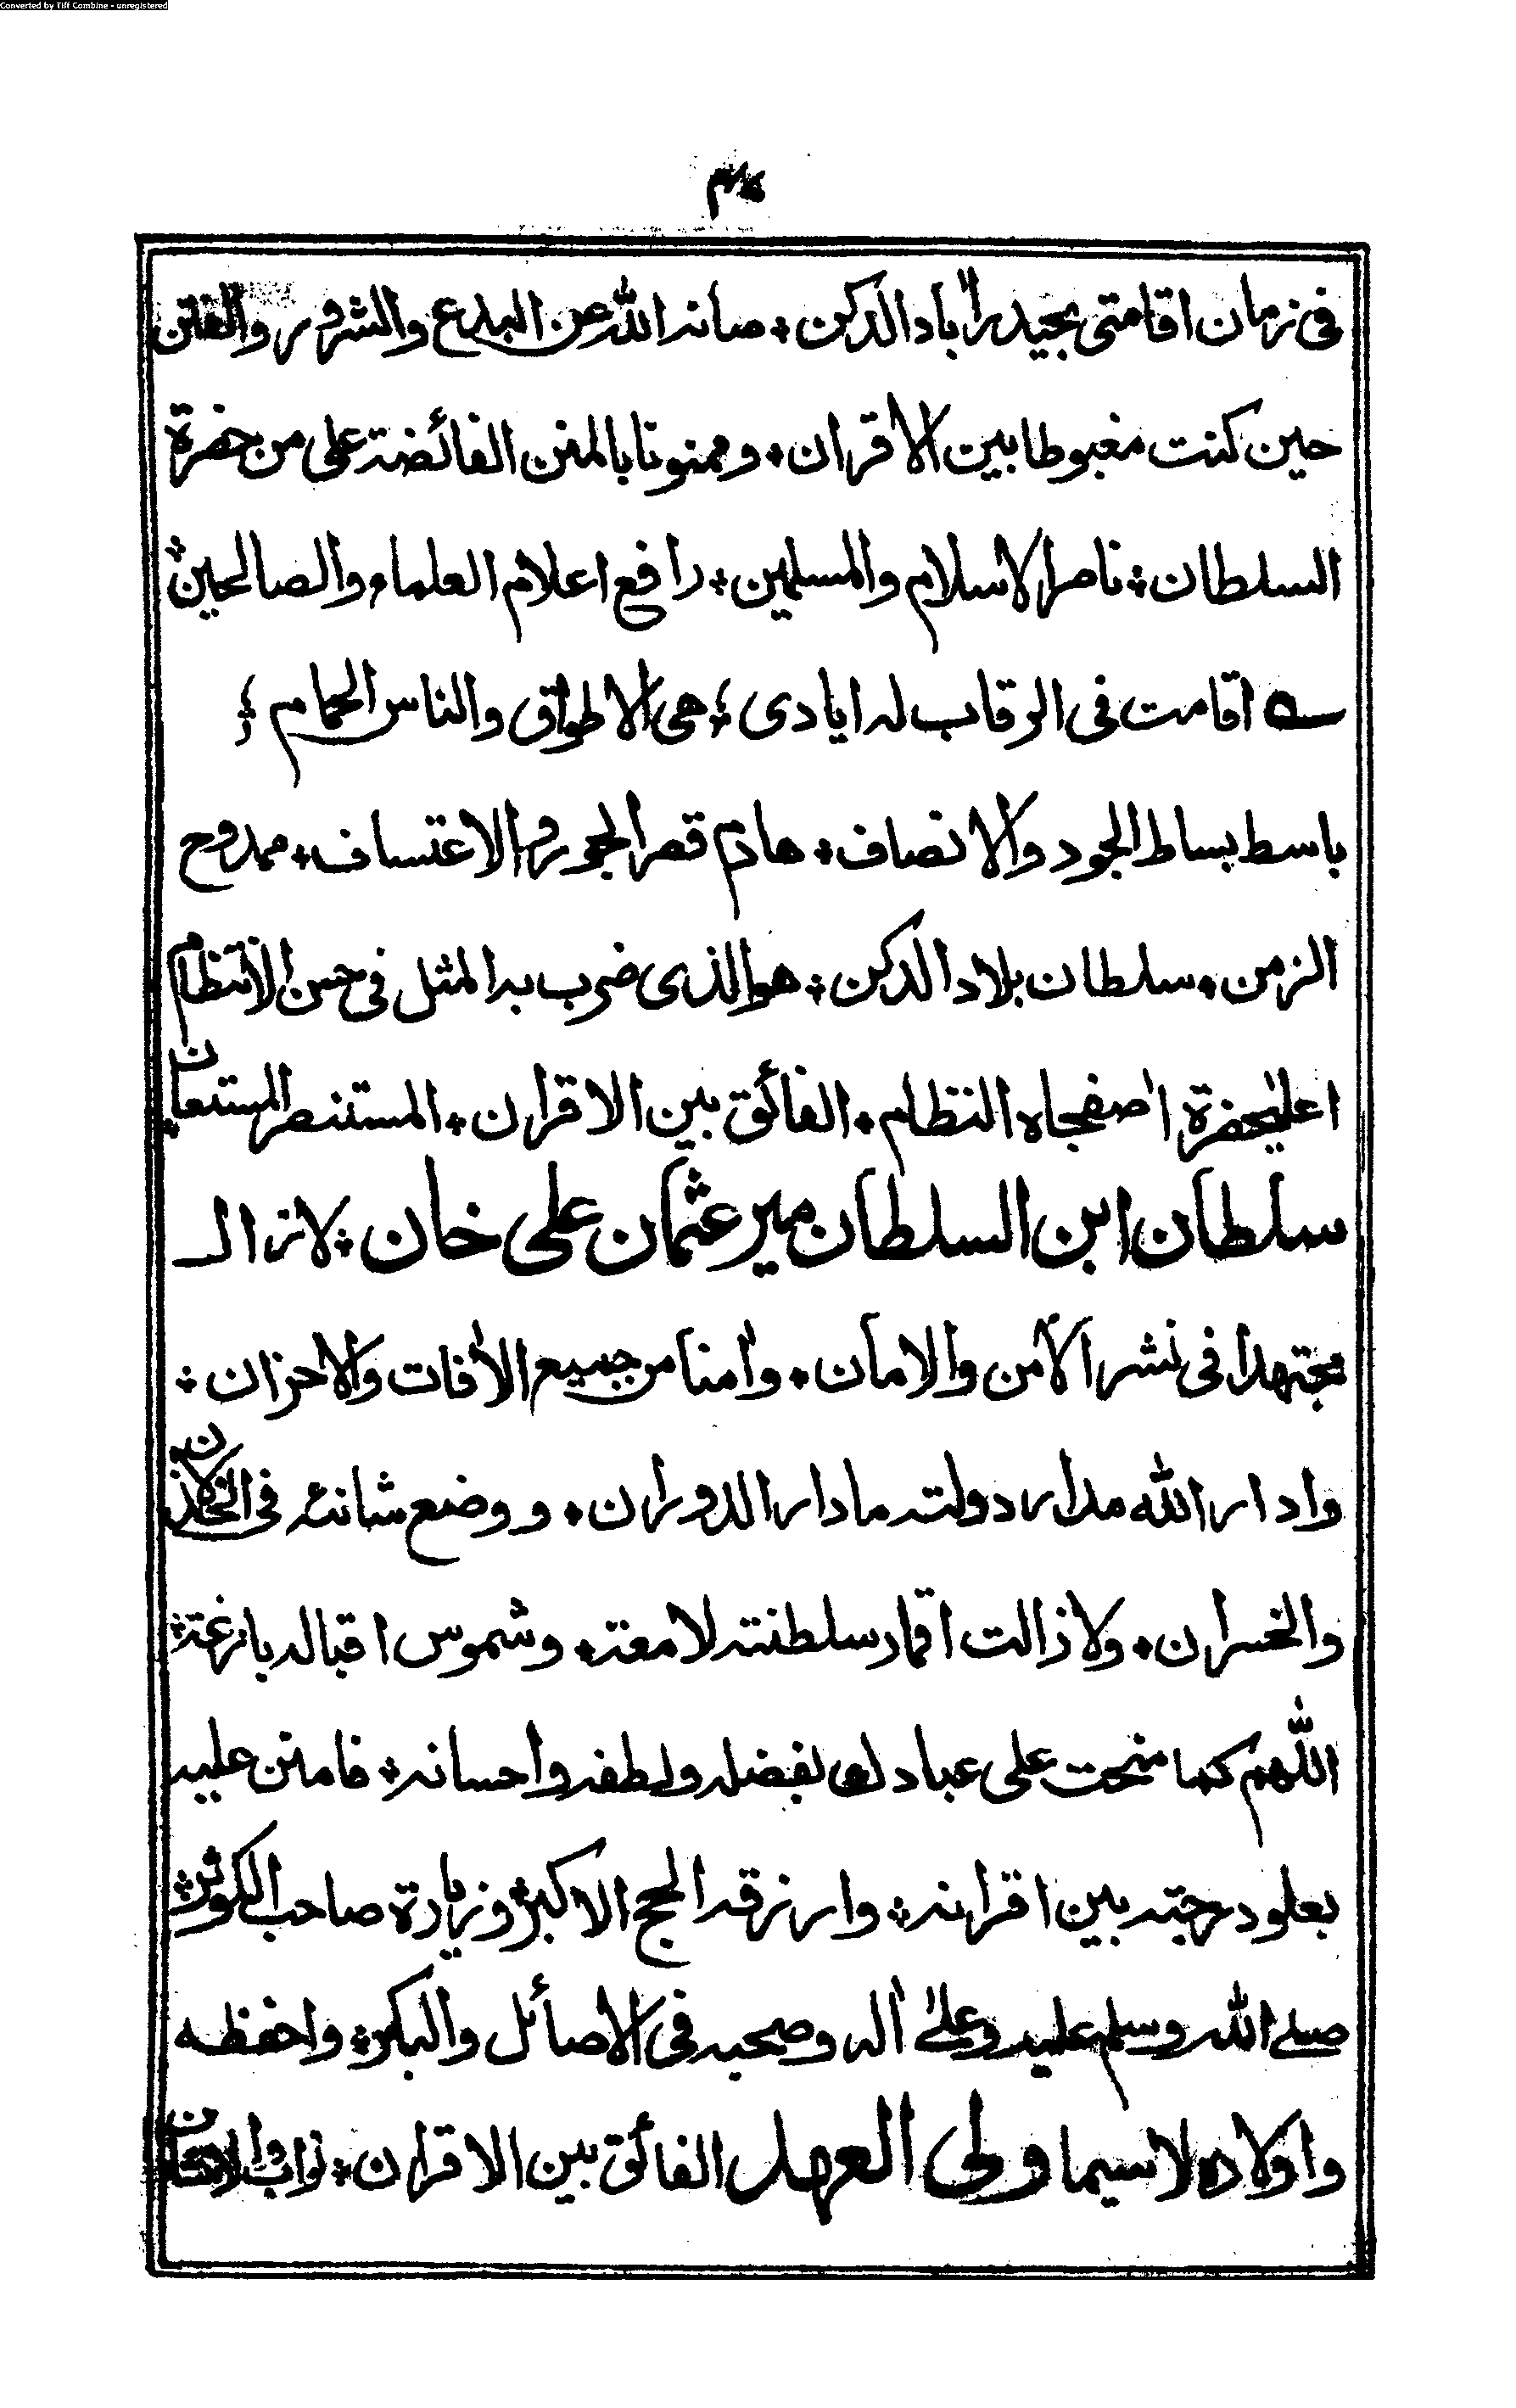 Converted by Tiff Combine - unregistered
في زمان اقامتي بحيدرآباد الدكن * صانه الله عن البدع والشرور والفتن
حين كنت مغبوطا بين الاقران * وممنونا بالمنن الفائضة على من حضرة
السلطان * ناصر الاسلام والمسلمين * رافع اعلام العلماء والصالحين *
اقامت في الرقاب له ايادى ؛ هي الاطواق والناس الحمام ؛
باسط بساط الجود والانصاف * هادم قصر الجور والاعتساف * ممدوح
الزمن * سلطان بلاد الدكن * هو الذى ضرب به المثل في حسن الانتظام
اعليٰحضرة اصفجاه النظام * الفائق بين الاقران * المستنصر المستعان
سلطان ابن السلطان مير عثمان علي خان * لازال
مجتهدا في نشر الامن والامان * واٰمنا من جميع الاٰفات والاحزان *
وادار الله مدار دولته مادار الدوران * ووضع شانئه في الخذلان
والخسران * ولا زالت اقمار سلطنته لامعة * وشموس اقباله بازغة *
اللهم كما منحت على عبادك بفضله ولطفه واحسانه * فامنن عليه
بعلو درجته بين اقرانه * وارزقه الحج الاكبر * وزيارة صاحب الكوثر *
صلے الله وسلم عليه وعلےٰ اٰله وصحبه في الاصائل والبكر * واحفظه
واولاده لاسيما ولى العهد الفائق بين الاقران * نواب والامتنان